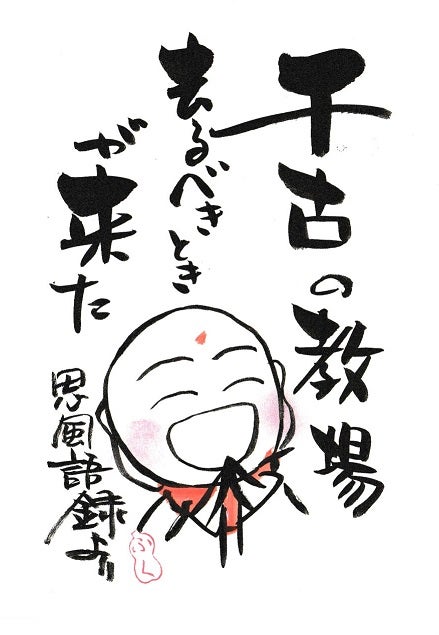 千古の教場
去るべきとき
が来た
思風語録より
ふく